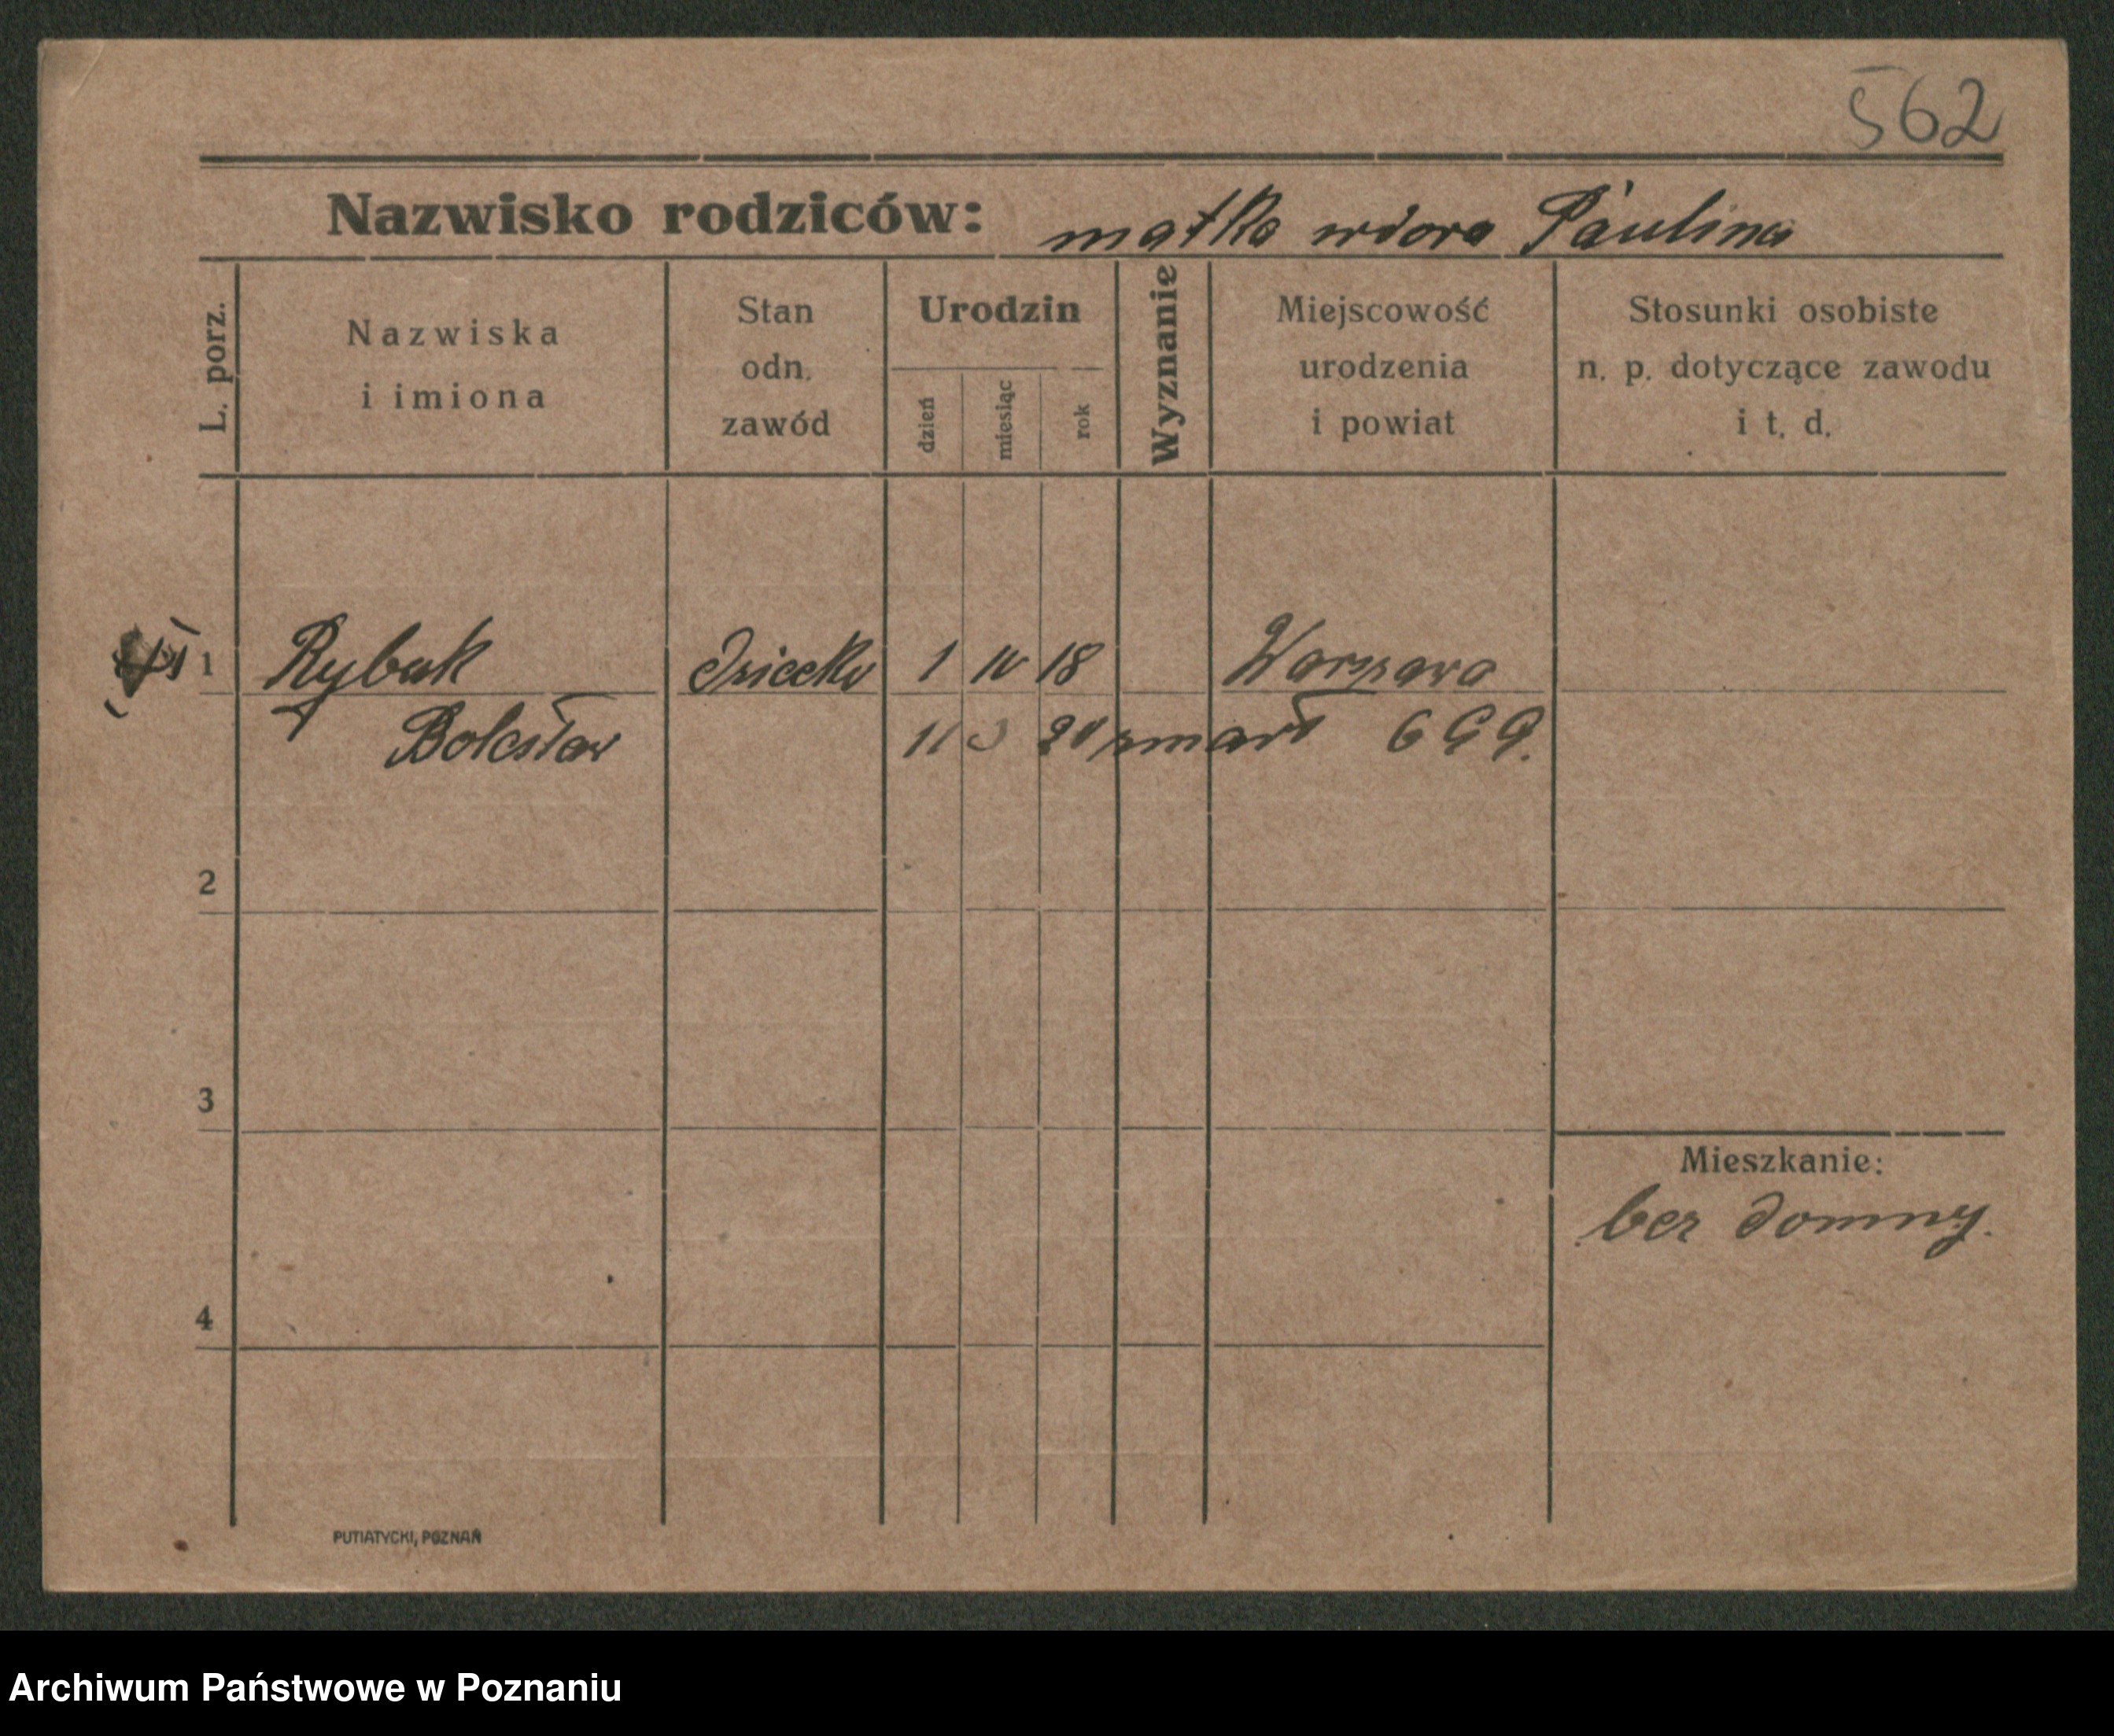 562
Nazwisko rodziców: matka wdowa Paulina
L. porz.
Nazwiska
i imiona
Stan
odn.
zawód
Urodzin
dzień
miesiąc
rok
Wyznanie
Miejscowość
urodzenia
i powiat
Stosunki osobiste
n. p. dotyczące zawodu
i t. d.
1 Rybak dziecko 1 IV 18 Warszawa
Bolesław 11 20 zmarł
2
3
Mieszkanie:
bez domny.
4
PUTIATYCKI, POZNAŃ
Archiwum Państwowe w Poznaniu